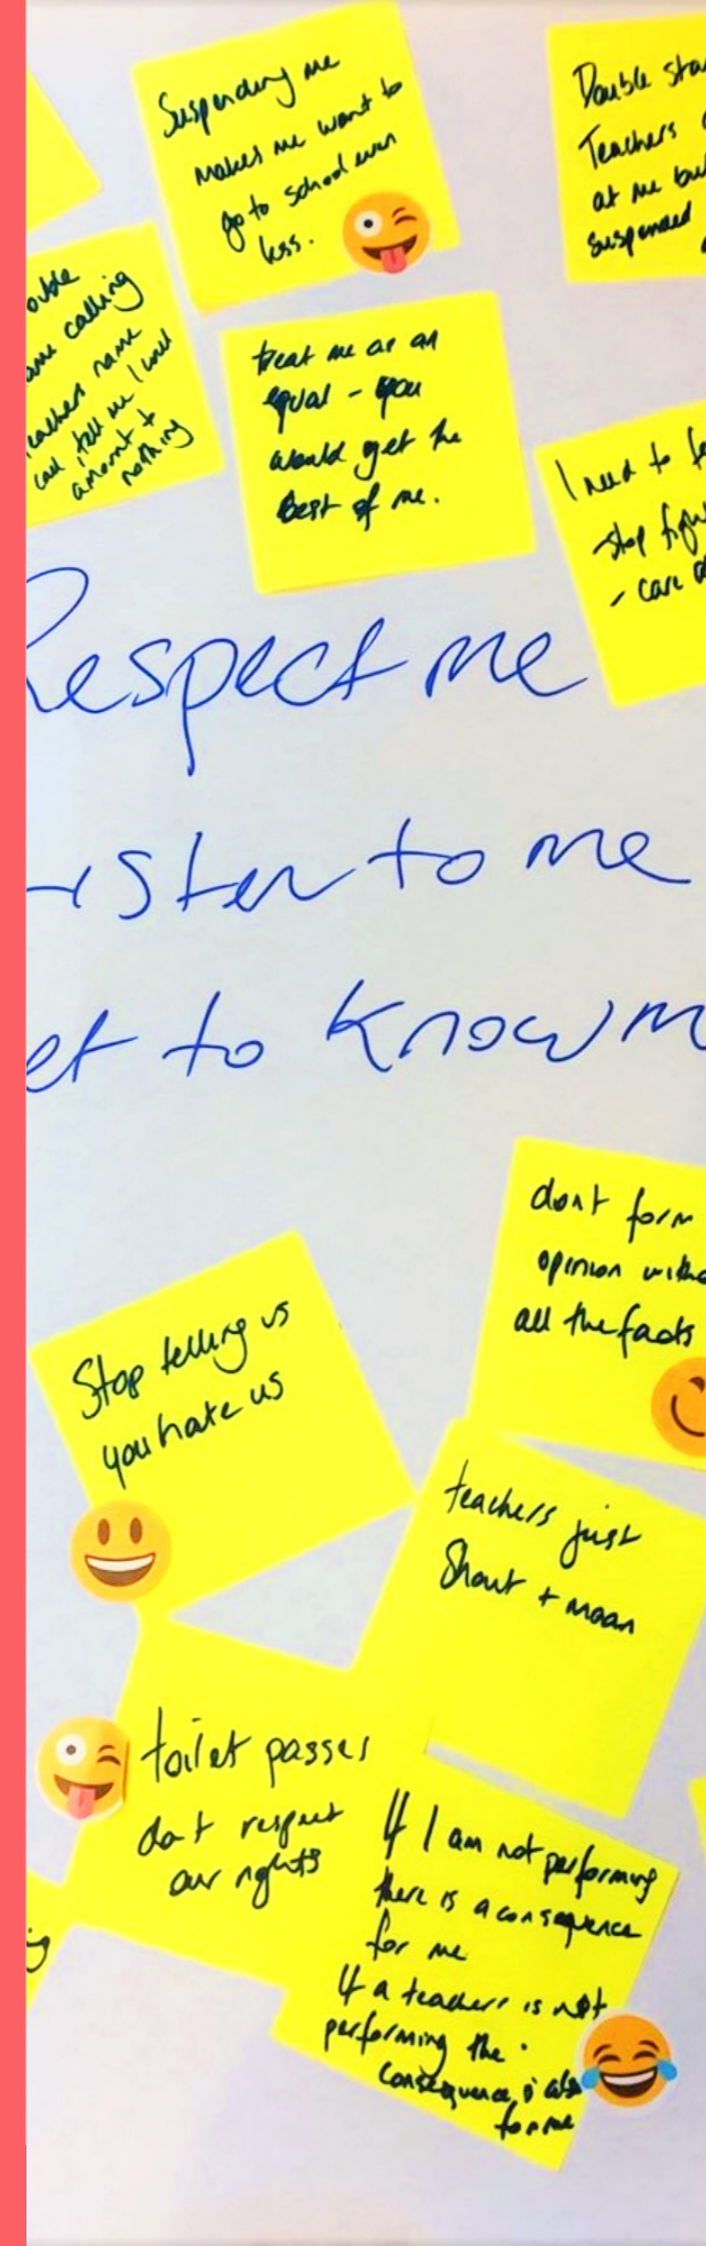 Suspending me
makes me want to
go to school even
less.
Double
Teachers
at me but
suspended
calling
teachers name
can tell me I will
amount to
nothing
treat me as an
equal - you
would get the
best of me.
I need to
stop
- care
Respect me
Listen to me
to know
dont form
opinion
all the facts
Stop telling us
you hate us
teachers just
Shout + moan
toilet passes
dont respect
our rights
If I am not performing
there is a consequence
for me
If a teacher is not
performing the
consequence is also
for me